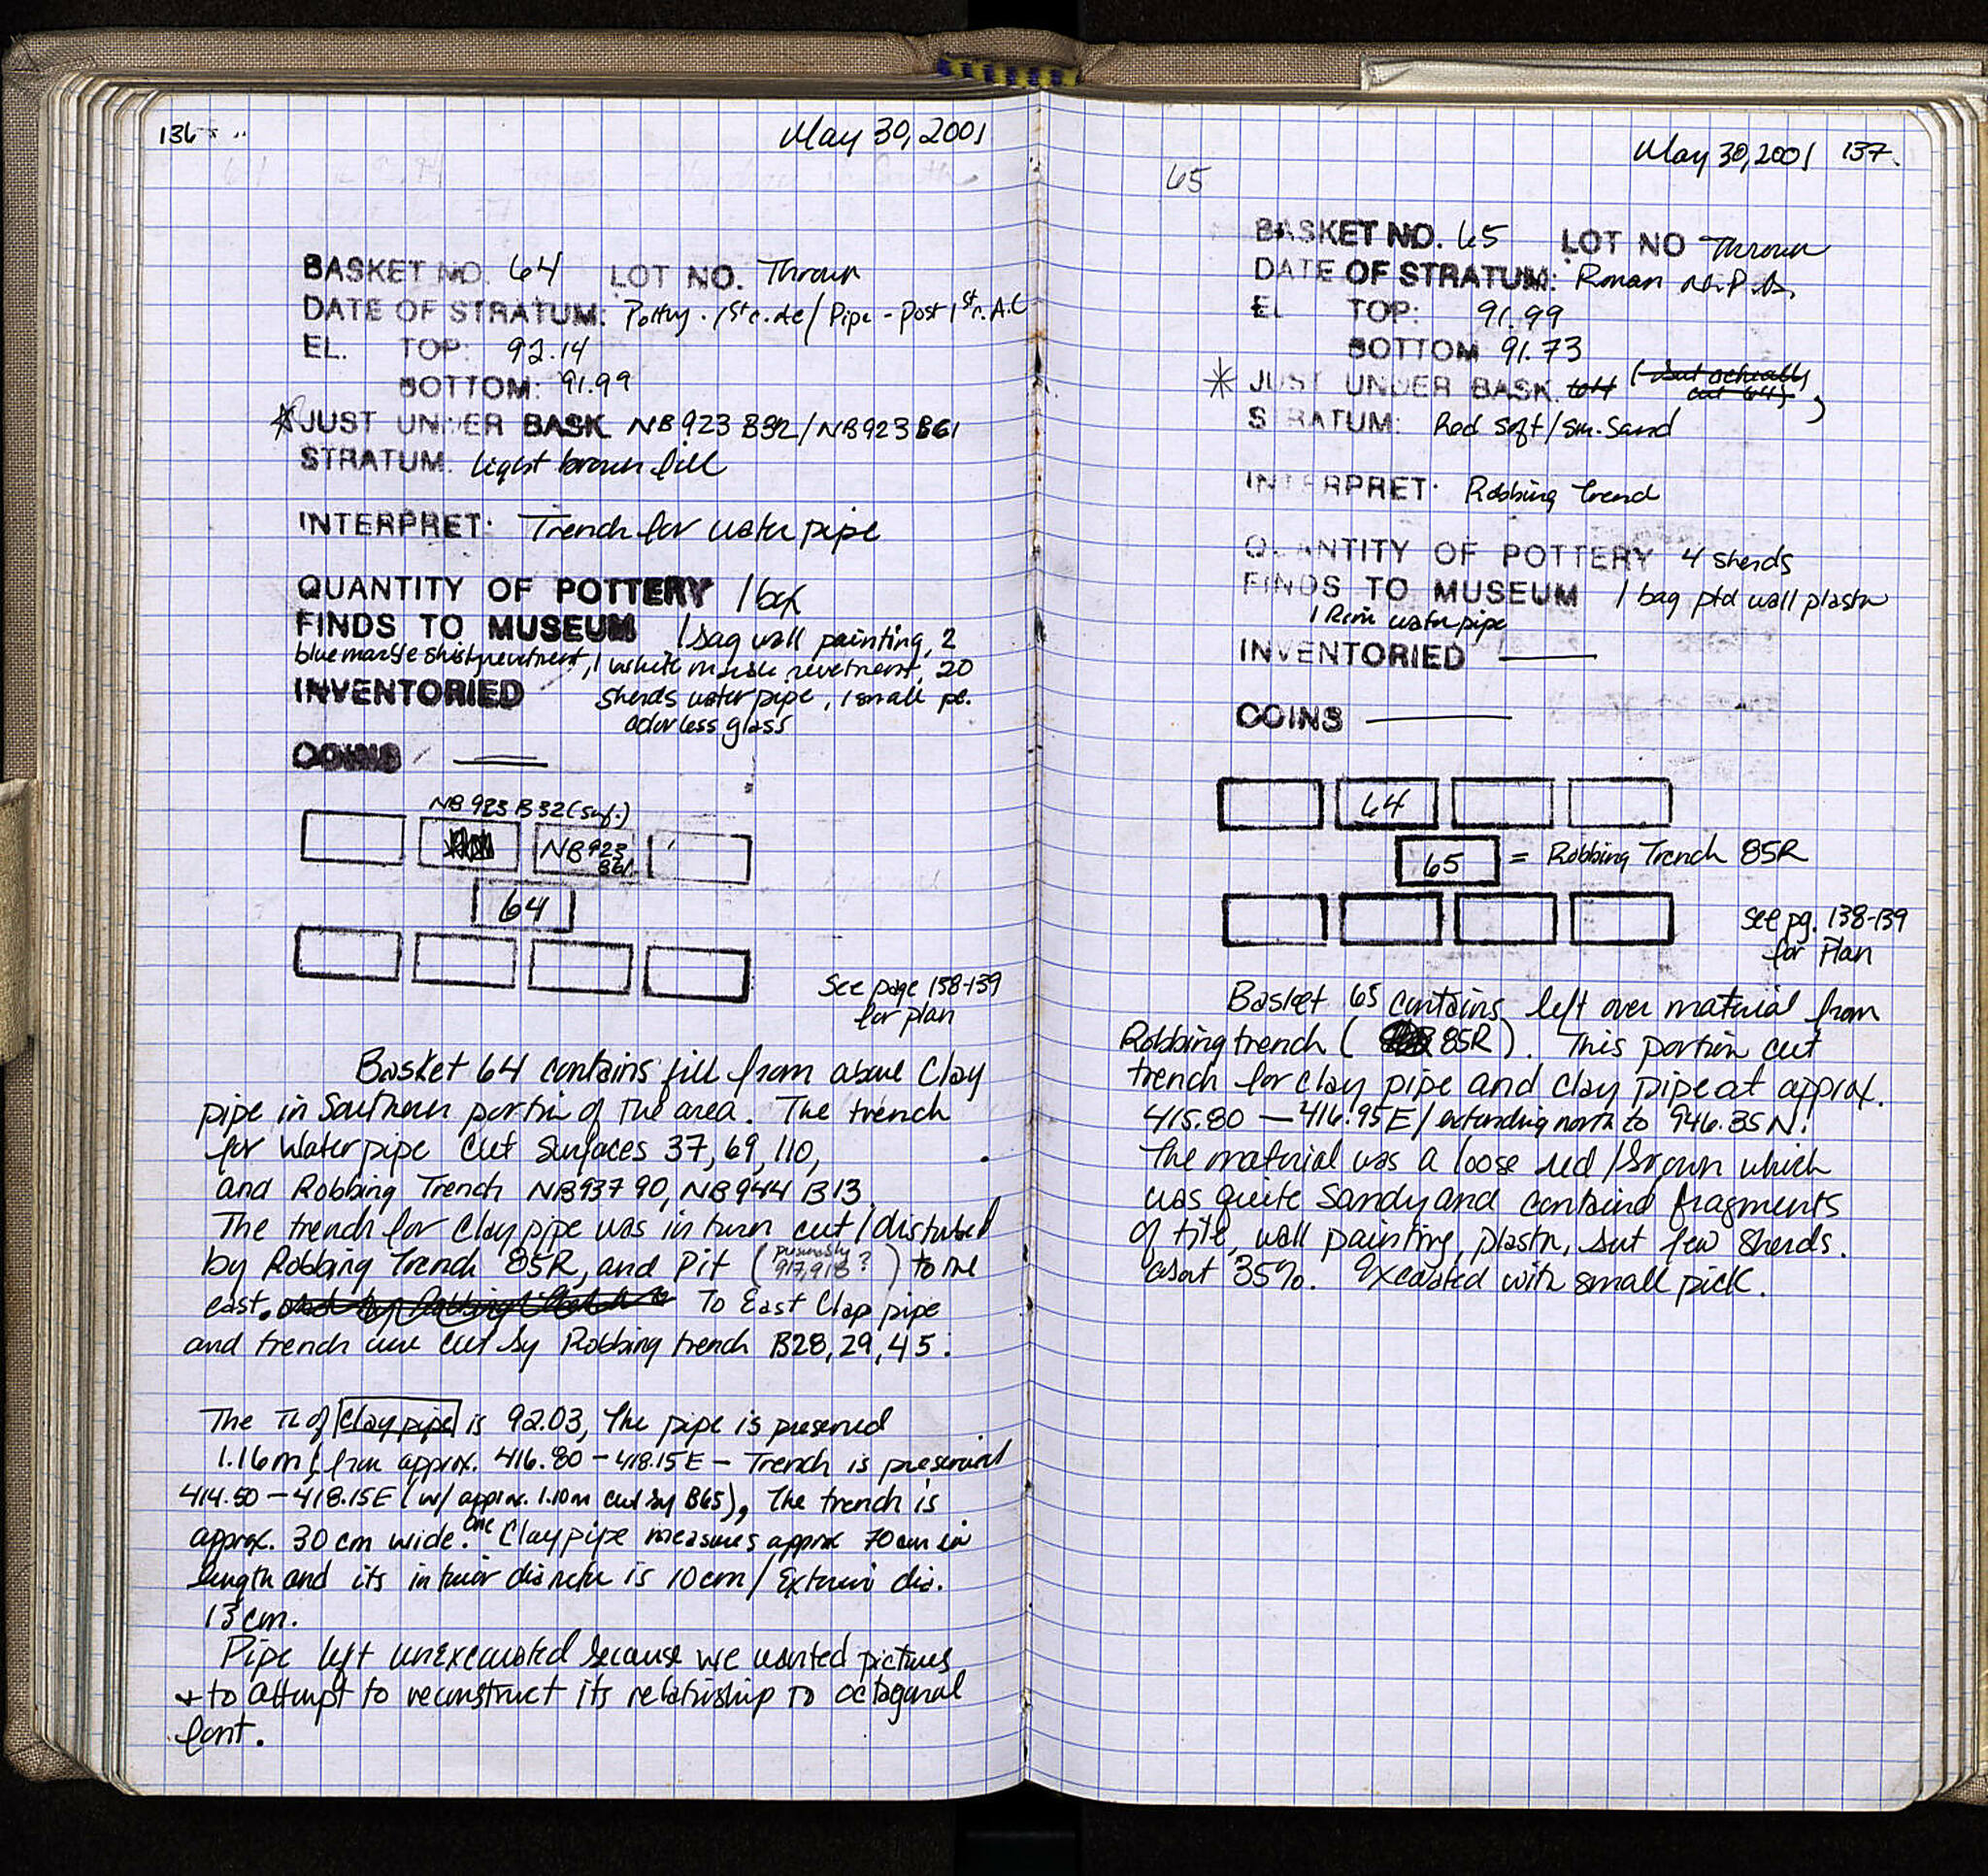 136
May 30, 2001
BASKET NO. 64 LOT NO. Thrown
DATE OF STRATUM: Pottery · 1st c. AC / Pipe - Post 1st c. A.C
EL. TOP: 92.14
BOTTOM: 91.99
* JUST UNDER BASK NB923 B32/NB923 B61
STRATUM: light brown fill
INTERPRET: Trench for water pipe
QUANTITY OF POTTERY 1 box
FINDS TO MUSEUM 1 bag wall painting, 2
blue marble revetment, 1 white marble revetment, 20
INVENTORIED sherds water pipe, 1 small pc.
colorless glass
COINS ——
NB923 B32 (surf.)
NB923
B61
64
See page 138-139
for plan
Basket 64 contains fill from above Clay
pipe in Southern portion of the area. The trench
for Waterpipe cut Surfaces 37, 69, 110,
and Robbing Trench NB937 90, NB944 B13.
The trench for Clay pipe was in turn cut/disturbed
by Robbing Trench 85R, and Pit (previously 917, 918?) to the
east. To East Clay pipe
and trench were cut by Robbing trench B28, 29, 45.
The TL of Clay pipe is 92.03, The pipe is preserved
1.16m, from approx. 416.80 - 418.15E - Trench is preserved
414.50 - 418.15E (w/ approx. 1.10m cut by B65), The trench is
approx. 30 cm wide. One Clay pipe measures approx 70 cm in
length and its interior diameter is 10cm / Exterior dia.
13 cm.
Pipe left unexcavated because we wanted pictures
+ to attempt to reconstruct its relationship to octagonal
font.
May 30, 2001 137.
65
BASKET NO. 65 LOT NO Thrown
DATE OF STRATUM: Roman
EL TOP: 91.99
BOTTOM 91.73
* JUST UNDER BASK. (but actually
cut 64),
STRATUM: Red soft/sm. Sand
INTERPRET: Robbing trend
QUANTITY OF POTTERY 4 sherds
FINDS TO MUSEUM 1 bag ptd wall plaster
1 Rim water pipe
INVENTORIED ——
COINS ——
64
65 = Robbing Trench 85R
see pg. 138-139
for Plan
Basket 65 contains left over material from
Robbing trench ( 85R). This portion cut
trench for clay pipe and clay pipe at approx.
415.80 — 416.95E / extending north to 946.35 N.
The material was a loose red/brown which
was quite Sandy and contained fragments
of tile, wall painting, plaster, but few sherds.
about 35%. Excavated with small pick.